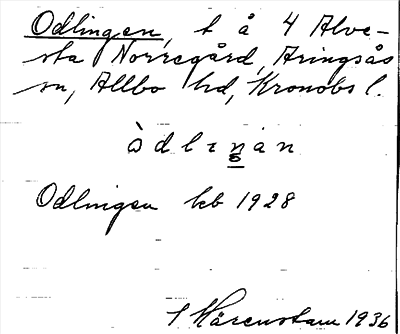 Odlingen, t å 4 Alve-
sta Norregård, Aringsås
sn, Allbo hd, Kronobs l.
òdlɪŋàn
Odlingen kb 1928
S Härenstam 1936